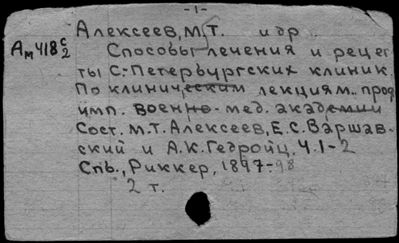 -1-
Алексеев, М.Т. и др.
Ам 418 с/2
Способы лечения и рецеп
ты С.-Петербургских клиник.
По клиническим лекциям проф
имп. военно-мед. академии
Сост. М.Т. Алексеев, Е.С. Варшав-
ский и А.К. Гедройц. Ч.1-2
Спб., Риккер, 1897-98
2 т.